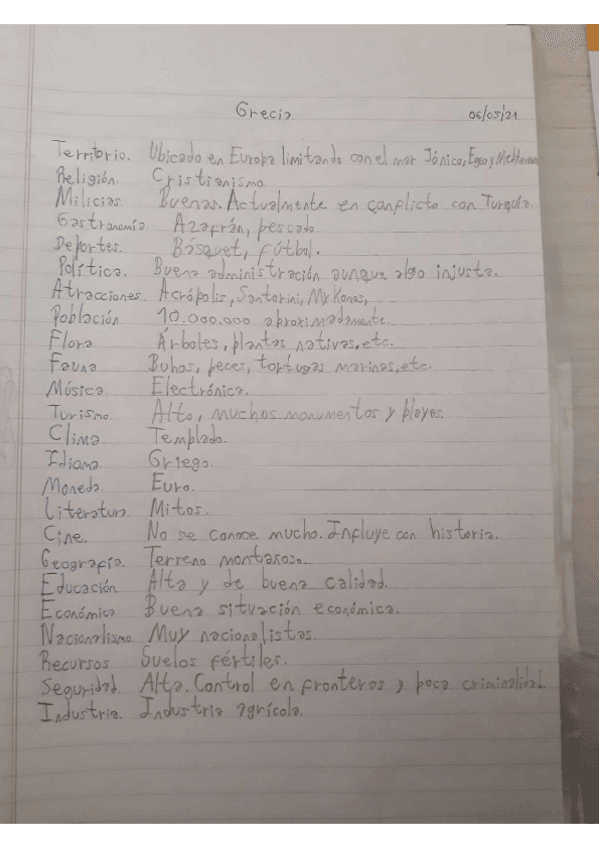 Grecia
06/05/21
Territorio. Ubicado en Europa limitando con el mar Jónico, Egeo y Mediterraneo
Religión. Cristianismo.
Milicias. Buenas. Actualmente en conflicto con Turquía.
Gastronomía. Azafrán, pescado
Deportes. Básquet, fútbol.
Política. Buena administración aunque algo injusta.
Atracciones. Acrópolis, Santorini, Mykonos,
Población 10.000.000 aproximadamente.
Flora Árboles, plantas nativas, etc.
Fauna Buhos, peces, tortugas marinas, etc.
Música. Electrónica.
Turismo. Alto, muchos monumentos y playas.
Clima. Templado.
Idioma. Griego.
Moneda. Euro.
Literatura. Mitos.
Cine. No se conoce mucho. Influye con historia.
Geografía. Terreno montañoso.
Educación Alta y de buena calidad.
Económica. Buena situación económica.
Nacionalismo. Muy nacionalistas.
Recursos Suelos fértiles.
Seguridad. Alta. Control en fronteras y poca criminalidad.
Industria. Industria agrícola.